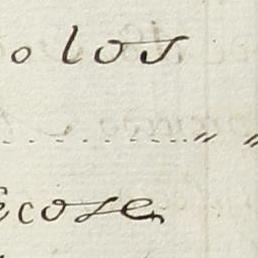 o los
......... " "
ecose